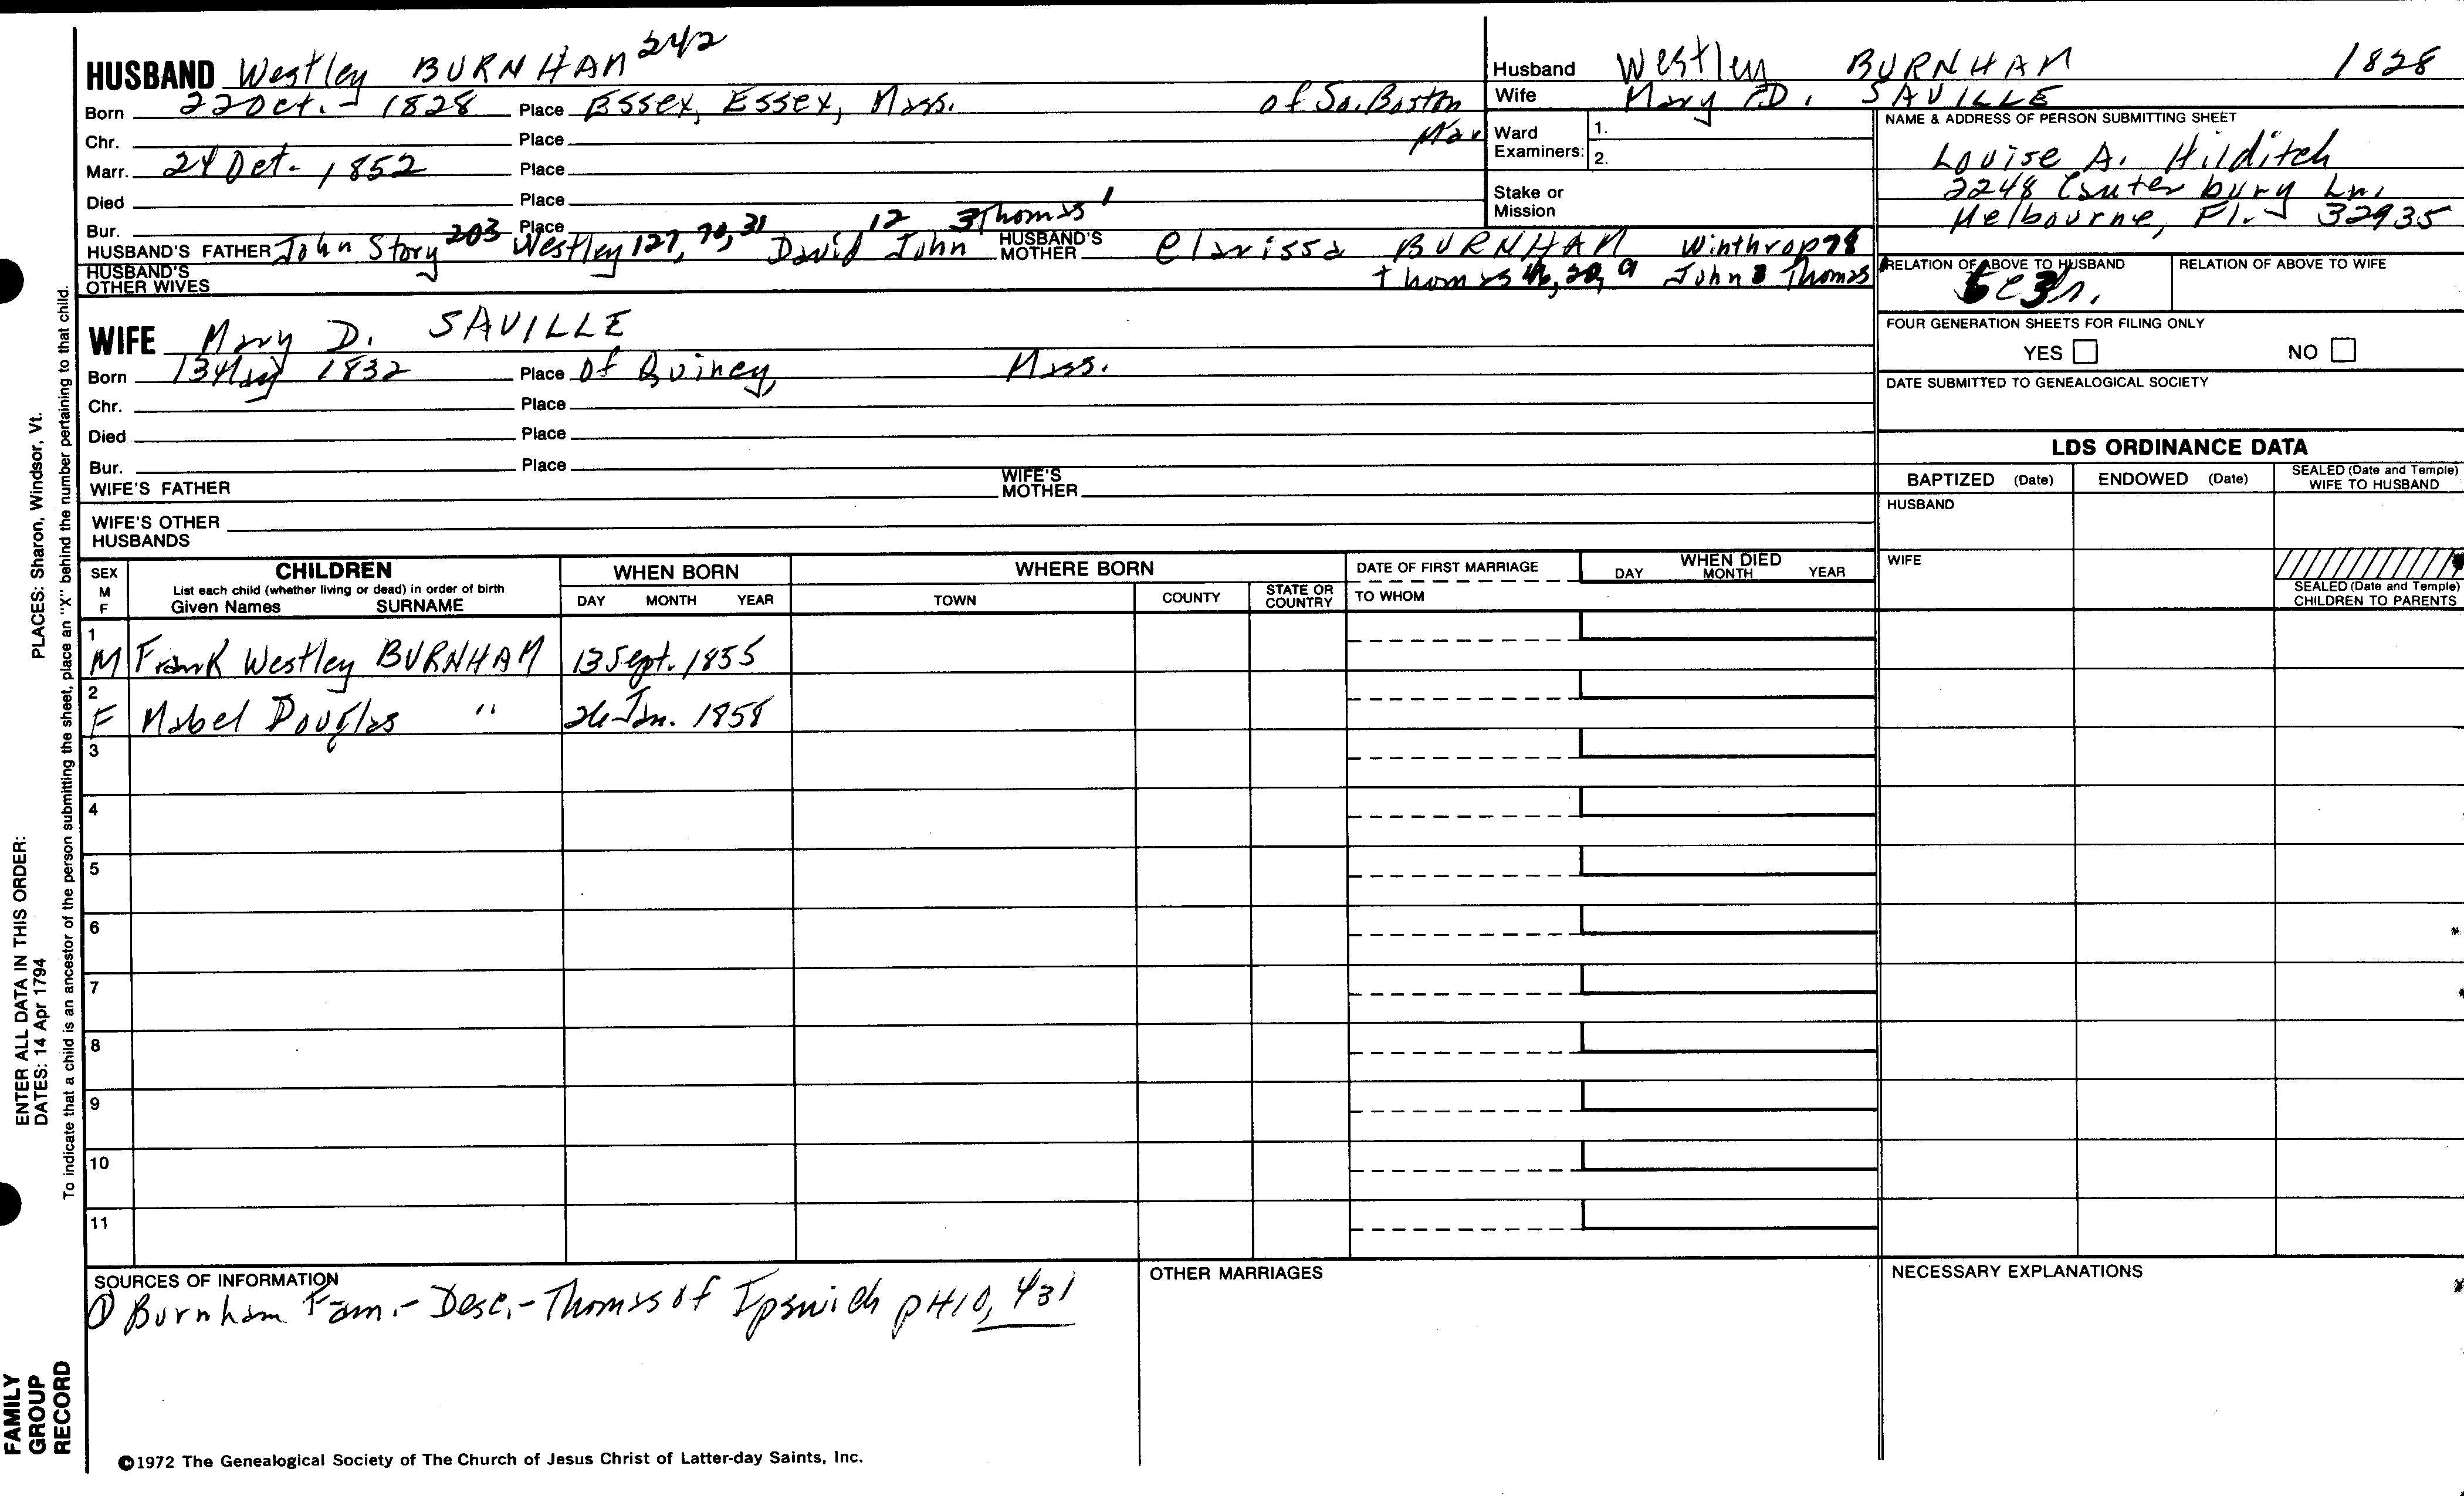 HUSBAND Westley BURNHAM 242
Born 22 Oct. - 1828 Place Essex, Essex, Mass. of So. Boston
Chr. Place
Marr. 24 Oct. - 1852 Place
Died Place
Bur. Place
HUSBAND'S FATHER John Story 203 Westley 127, 70, 31 David 12 John 3 Thomas 1 HUSBAND'S MOTHER Clarissa BURNHAM Winthrop 78
Thomas 46, 20, 9 John 3 Thomas
HUSBAND'S OTHER WIVES
Husband Westley BURNHAM 1828
Wife Mary D. SAVILLE
Ward Examiners: 1.
2.
Stake or Mission
NAME & ADDRESS OF PERSON SUBMITTING SHEET
Louise A. Hilditch
2248 Canterbury Ln.
Melbourne, Fl. 32935
RELATION OF ABOVE TO HUSBAND RELATION OF ABOVE TO WIFE
6c3r.
FOUR GENERATION SHEETS FOR FILING ONLY
YES NO
DATE SUBMITTED TO GENEALOGICAL SOCIETY
WIFE Mary D. SAVILLE
Born 13 May 1832 Place of Quincy, Mass.
Chr. Place
Died Place
Bur. Place
WIFE'S FATHER WIFE'S MOTHER
WIFE'S OTHER HUSBANDS
LDS ORDINANCE DATA
BAPTIZED (Date) ENDOWED (Date) SEALED (Date and Temple) WIFE TO HUSBAND
HUSBAND
WIFE
SEALED (Date and Temple) CHILDREN TO PARENTS
SEX M F
CHILDREN
List each child (whether living or dead) in order of birth
Given Names SURNAME
WHEN BORN
DAY MONTH YEAR
WHERE BORN
TOWN COUNTY STATE OR COUNTRY
DATE OF FIRST MARRIAGE
TO WHOM
WHEN DIED
DAY MONTH YEAR
1 M Frank Westley BURNHAM 13 Sept. 1855
2 F Mabel Douglas " 26 Jan. 1858
3
4
5
6
7
8
9
10
11
SOURCES OF INFORMATION
① Burnham Fam. - Desc. - Thomas of Ipswich p410, 431
OTHER MARRIAGES
NECESSARY EXPLANATIONS
©1972 The Genealogical Society of The Church of Jesus Christ of Latter-day Saints, Inc.
FAMILY GROUP RECORD
ENTER ALL DATA IN THIS ORDER:
DATES: 14 Apr 1794
PLACES: Sharon, Windsor, Vt.
To indicate that a child is an ancestor of the person submitting the sheet, place an "X" behind the number pertaining to that child.